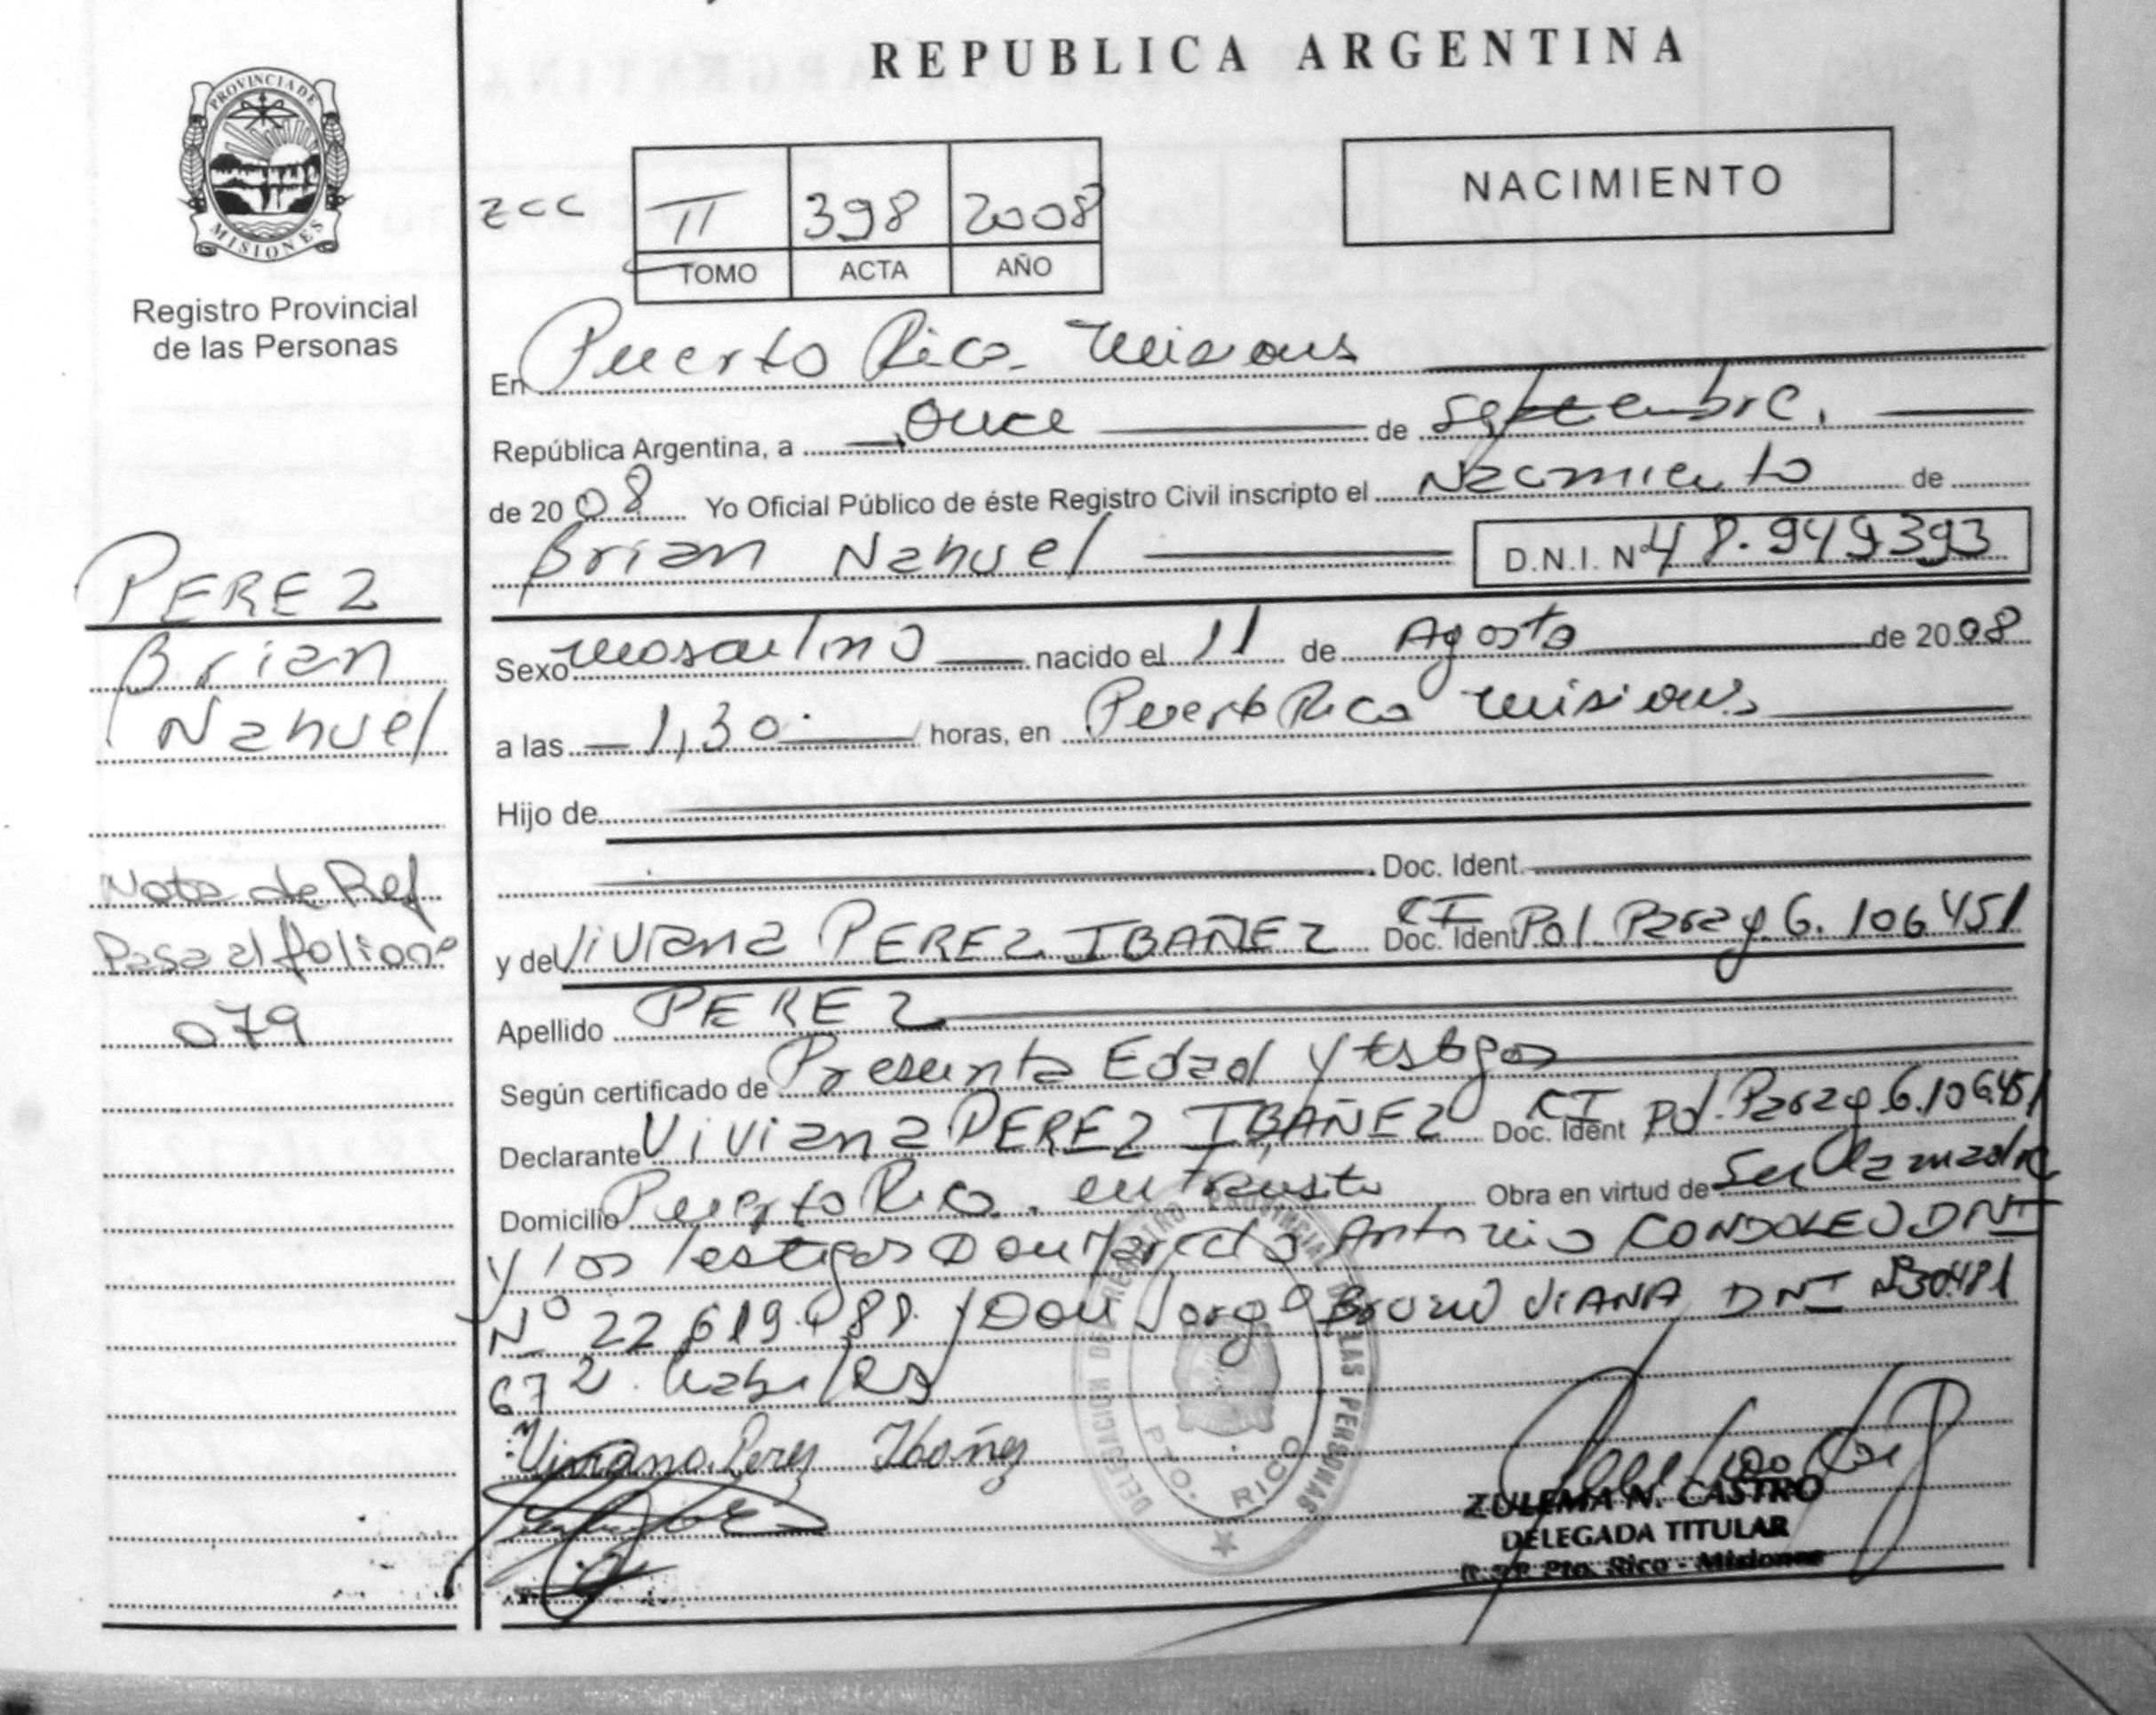 REPUBLICA ARGENTINA
PROVINCIA DE
MISIONES
Registro Provincial
de las Personas
zcc
II 398 2008
TOMO ACTA AÑO
NACIMIENTO
En Puerto Rico. Misiones
República Argentina, a once de Septiembre.
de 2008 Yo Oficial Público de éste Registro Civil inscripto el Nacimiento de
Brian Nahuel D.N.I. Nº 48.949393
PEREZ
Brian
Nahuel
Nota de Ref
Pasa al folio nº
079
Sexo masculino nacido el 11 de Agosto de 2008
a las 1,30 horas, en Puerto Rico Misiones
Hijo de
Doc. Ident.
y de Viviana PEREZ IBAÑEZ CI Doc. Ident Pol. Parag. 6.106451
Apellido PEREZ
Según certificado de Presunta Edad y testigos
Declarante Viviana PEREZ IBAÑEZ CI Doc. Ident Pol. Parag 6.106.451
Domicilio Puerto Rico. en Obra en virtud de Ser la madre
y los Testigos Don Antonio CONDOLEO DNI
Nº 22.619. y Don Jorge VIANA DNI
672.
Viviana Perez Ibañez
DELEGACION DEL REGISTRO PROVINCIAL DE LAS PERSONAS
PTO. RICO
ZULEMA N. CASTRO
DELEGADA TITULAR
R.P.P. Pto. Rico - Misiones